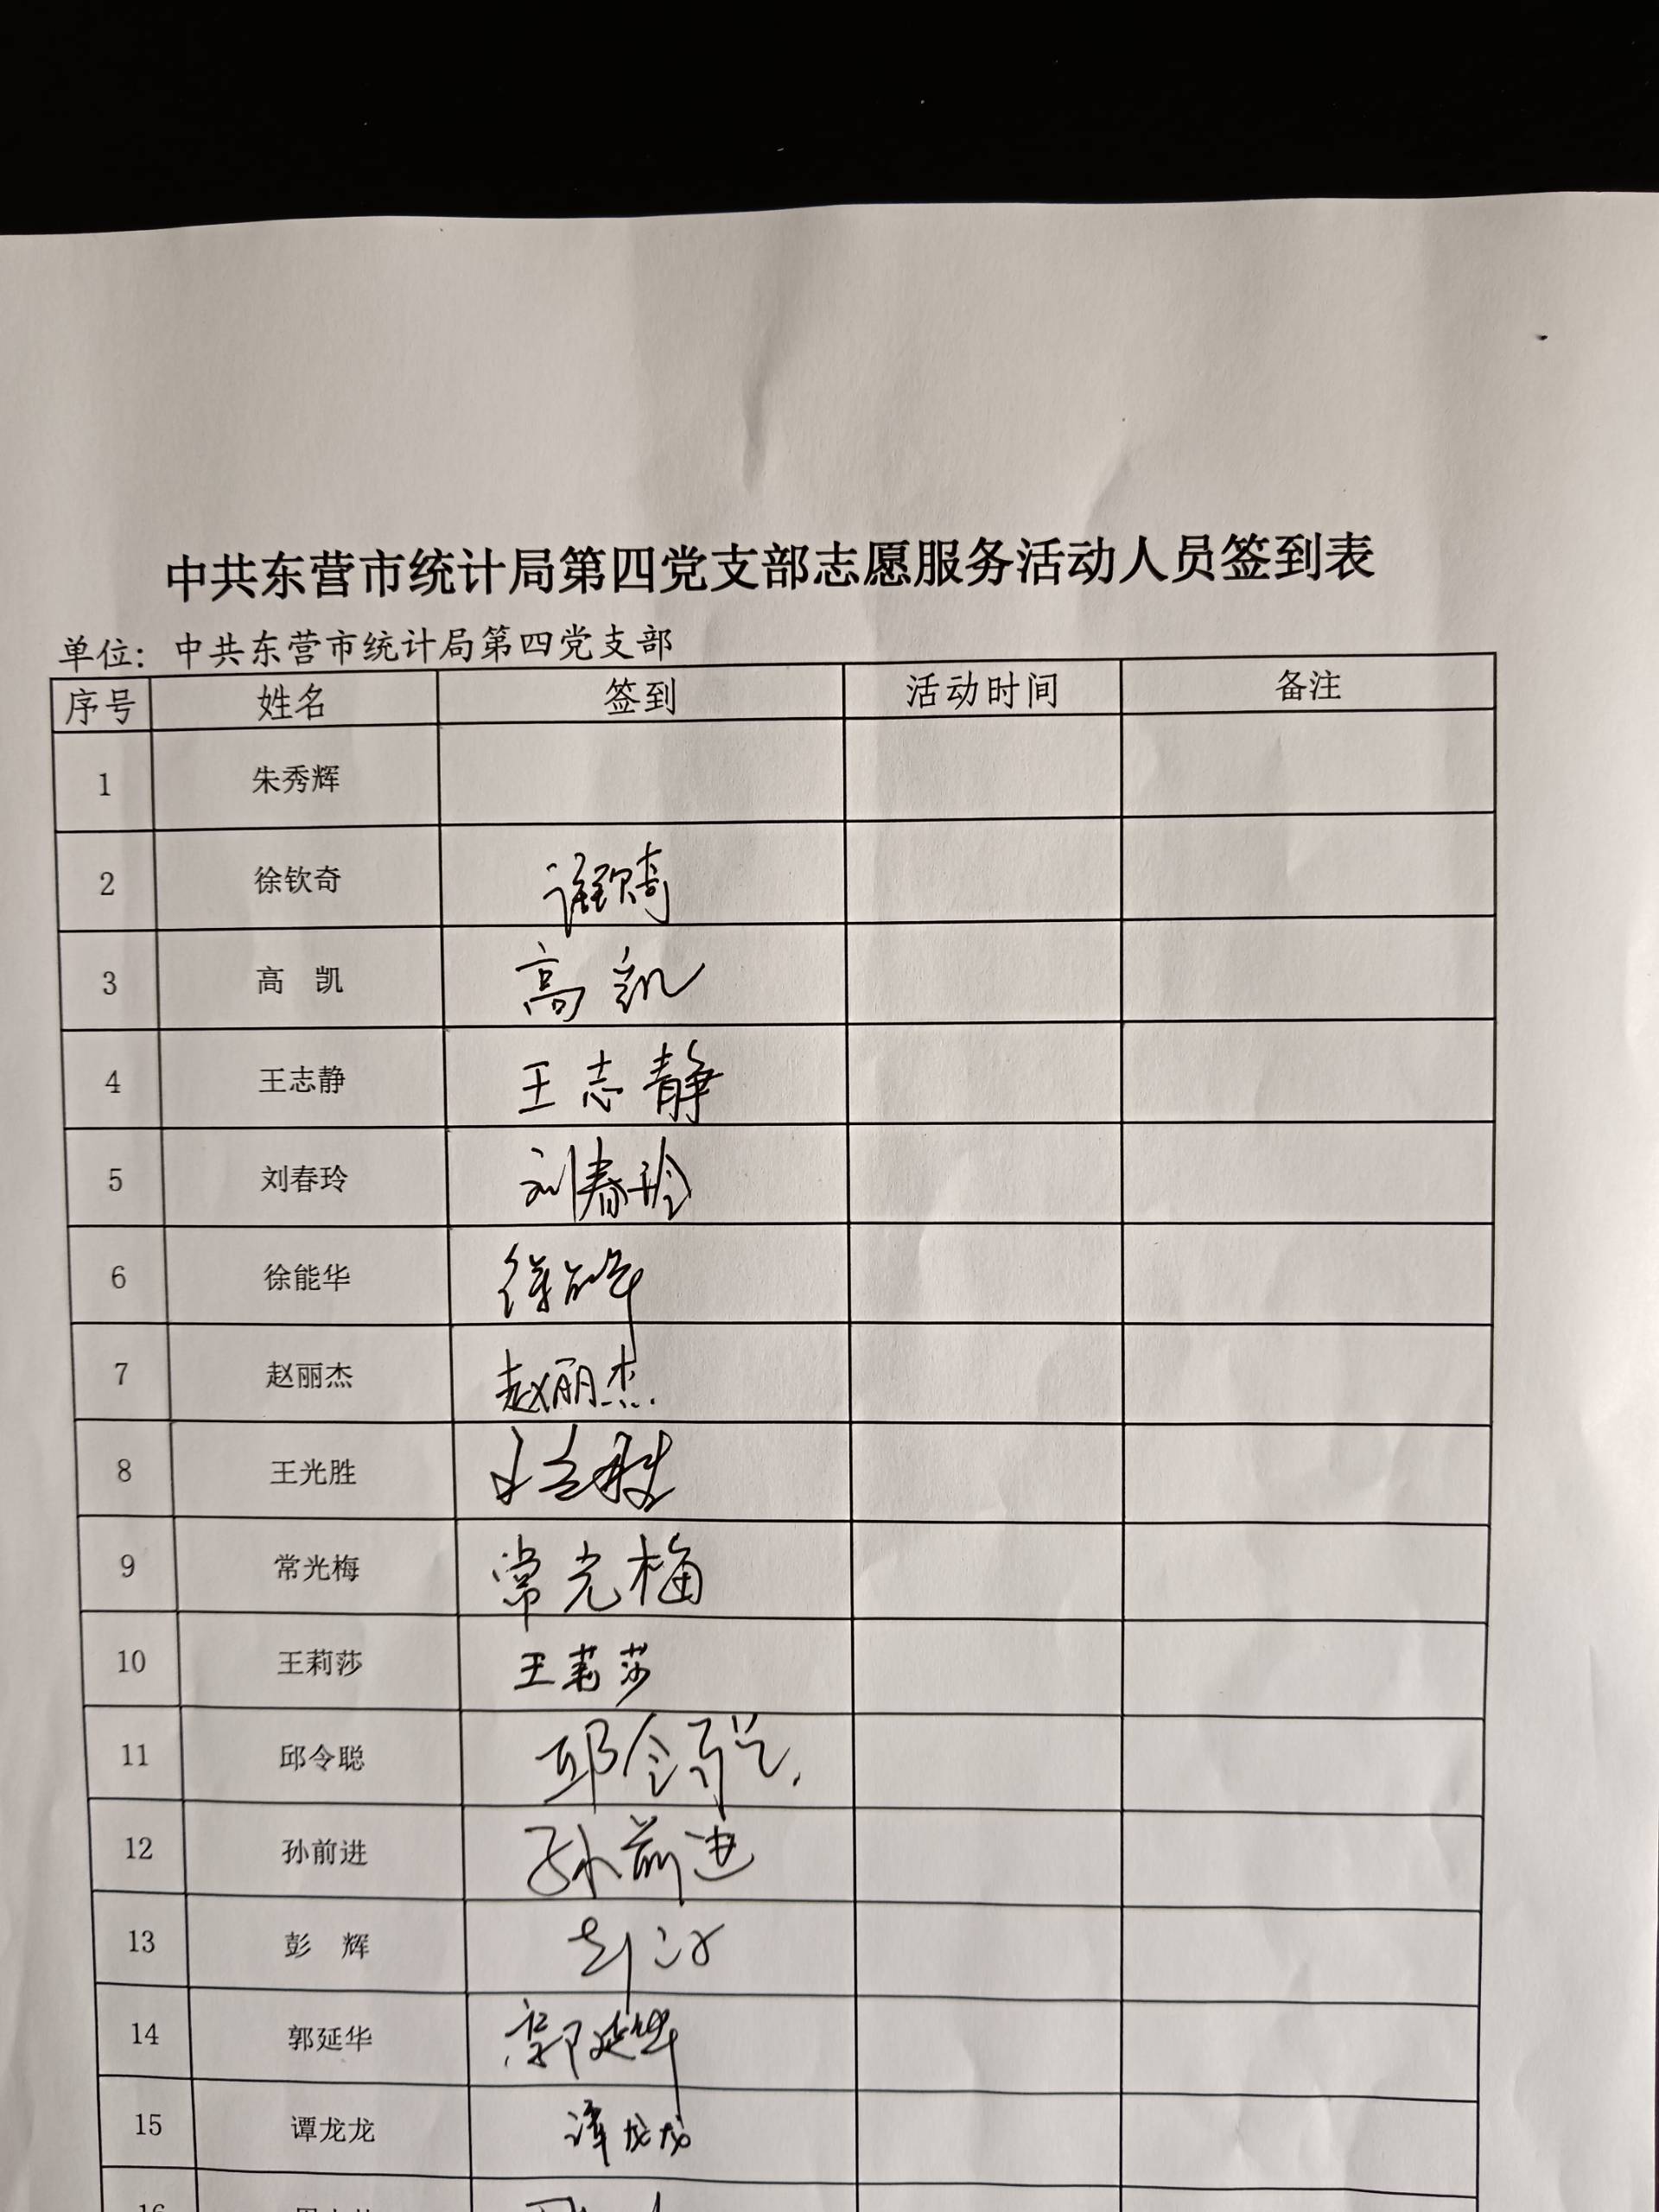 中共东营市统计局第四党支部志愿服务活动人员签到表
单位：中共东营市统计局第四党支部
序号 姓名 签到 活动时间 备注
1 朱秀辉
2 徐钦奇 徐钦奇
3 高 凯 高凯
4 王志静 王志静
5 刘春玲 刘春玲
6 徐能华 徐能华
7 赵丽杰 赵丽杰
8 王光胜 王光胜
9 常光梅 常光梅
10 王莉莎 王莉莎
11 邱令聪 邱令聪
12 孙前进 孙前进
13 彭 辉 彭辉
14 郭延华 郭延华
15 谭龙龙 谭龙龙
16